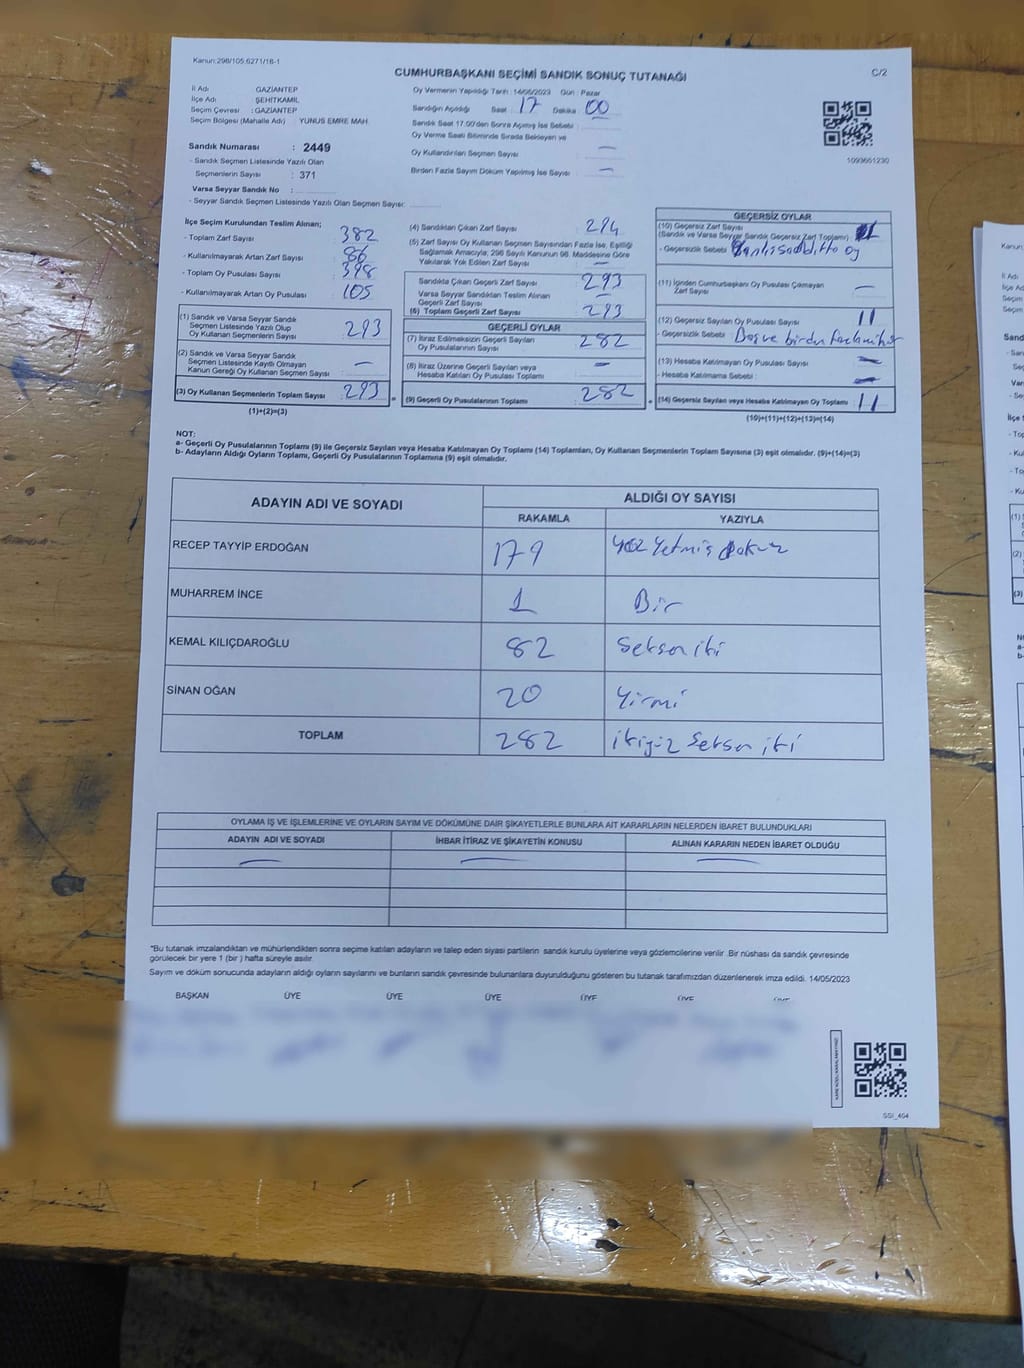 Kanun:298/105.6271/18-1
CUMHURBAŞKANI SEÇİMİ SANDIK SONUÇ TUTANAĞI
C/2
İl Adı GAZİANTEP
İlçe Adı ŞEHİTKAMİL
Seçim Çevresi : GAZİANTEP
Seçim Bölgesi (Mahalle Adı) : YUNUS EMRE MAH.
Sandık Numarası : 2449
- Sandık Seçmen Listesinde Yazılı Olan
Seçmenlerin Sayısı : 371
Varsa Seyyar Sandık No :
- Seyyar Sandık Seçmen Listesinde Yazılı Olan Seçmen Sayısı:
Oy Vermenin Yapıldığı Tarih : 14/05/2023 Gün : Pazar
Sandığın Açıldığı Saat : 17 Dakika : 00
Sandık Saat 17.00'den Sonra Açılmış İse Sebebi :
Oy Verme Saati Bitiminde Sırada Bekleyen ve
Oy Kullandırılan Seçmen Sayısı : —
Birden Fazla Sayım Döküm Yapılmış İse Sayısı : —
1093651230
İlçe Seçim Kurulundan Teslim Alınan;
- Toplam Zarf Sayısı : 382
- Kullanılmayarak Artan Zarf Sayısı : 86
- Toplam Oy Pusulası Sayısı : 398
- Kullanılmayarak Artan Oy Pusulası : 105
(1) Sandık ve Varsa Seyyar Sandık
Seçmen Listesinde Yazılı Olup
Oy Kullanan Seçmenlerin Sayısı : 293
(2) Sandık ve Varsa Seyyar Sandık
Seçmen Listesinde Kayıtlı Olmayan
Kanun Gereği Oy Kullanan Seçmen Sayısı : —
(3) Oy Kullanan Seçmenlerin Toplam Sayısı : 293
(1)+(2)=(3)
(4) Sandıktan Çıkan Zarf Sayısı : 294
(5) Zarf Sayısı Oy Kullanan Seçmen Sayısından Fazla İse; Eşitliği
Sağlamak Amacıyla; 298 Sayılı Kanunun 98. Maddesine Göre
Yakılarak Yok Edilen Zarf Sayısı : —
Sandıkta Çıkan Geçerli Zarf Sayısı : 293
Varsa Seyyar Sandıktan Teslim Alınan
Geçerli Zarf Sayısı : —
(6) Toplam Geçerli Zarf Sayısı : 293
GEÇERLİ OYLAR
(7) İtiraz Edilmeksizin Geçerli Sayılan
Oy Pusulalarının Sayısı : 282
(8) İtiraz Üzerine Geçerli Sayılan veya
Hesaba Katılan Oy Pusulası Toplamı : —
(9) Geçerli Oy Pusulalarının Toplamı : 282
GEÇERSİZ OYLAR
(10) Geçersiz Zarf Sayısı
(Sandık ve Varsa Seyyar Sandık Geçersiz Zarf Toplamı) :
- Geçersizlik Sebebi : Yanlış sandıkta oy
(11) İçinden Cumhurbaşkanı Oy Pusulası Çıkmayan
Zarf Sayısı : —
(12) Geçersiz Sayılan Oy Pusulası Sayısı : 11
- Geçersizlik Sebebi : Boş ve birden fazla mühür
(13) Hesaba Katılmayan Oy Pusulası Sayısı : —
- Hesaba Katılmama Sebebi : —
(14) Geçersiz Sayılan veya Hesaba Katılmayan Oy Toplamı : 11
(10)+(11)+(12)+(13)=(14)
NOT:
a- Geçerli Oy Pusulalarının Toplamı (9) ile Geçersiz Sayılan veya Hesaba Katılmayan Oy Toplamı (14) Toplamları, Oy Kullanan Seçmenlerin Toplam Sayısına (3) eşit olmalıdır. (9)+(14)=(3)
b- Adayların Aldığı Oyların Toplamı, Geçerli Oy Pusulalarının Toplamına (9) eşit olmalıdır.
ADAYIN ADI VE SOYADI ALDIĞI OY SAYISI
RAKAMLA YAZIYLA
RECEP TAYYİP ERDOĞAN 179 Yüz Yetmiş Dokuz
MUHARREM İNCE 1 Bir
KEMAL KILIÇDAROĞLU 82 Seksen iki
SİNAN OĞAN 20 Yirmi
TOPLAM 282 ikiyüz Seksen iki
OYLAMA İŞ VE İŞLEMLERİNE VE OYLARIN SAYIM VE DÖKÜMÜNE DAİR ŞİKAYETLERLE BUNLARA AİT KARARLARIN NELERDEN İBARET BULUNDUKLARI
ADAYIN ADI VE SOYADI İHBAR İTİRAZ VE ŞİKAYETİN KONUSU ALINAN KARARIN NEDEN İBARET OLDUĞU
— — —
"Bu tutanak imzalandıktan ve mühürlendikten sonra seçime katılan adayların ve talep eden siyasi partilerin sandık kurulu üyelerine veya gözlemcilerine verilir. Bir nüshası da sandık çevresinde
görülecek bir yere 1 (bir) hafta süreyle asılır.
Sayım ve döküm sonucunda adayların aldığı oyların sayılarını ve bunların sandık çevresinde bulunanlara duyurulduğunu gösteren bu tutanak tarafımızdan düzenlenerek imza edildi. 14/05/2023
BAŞKAN ÜYE ÜYE ÜYE ÜYE ÜYE ÜYE
SSİ_404